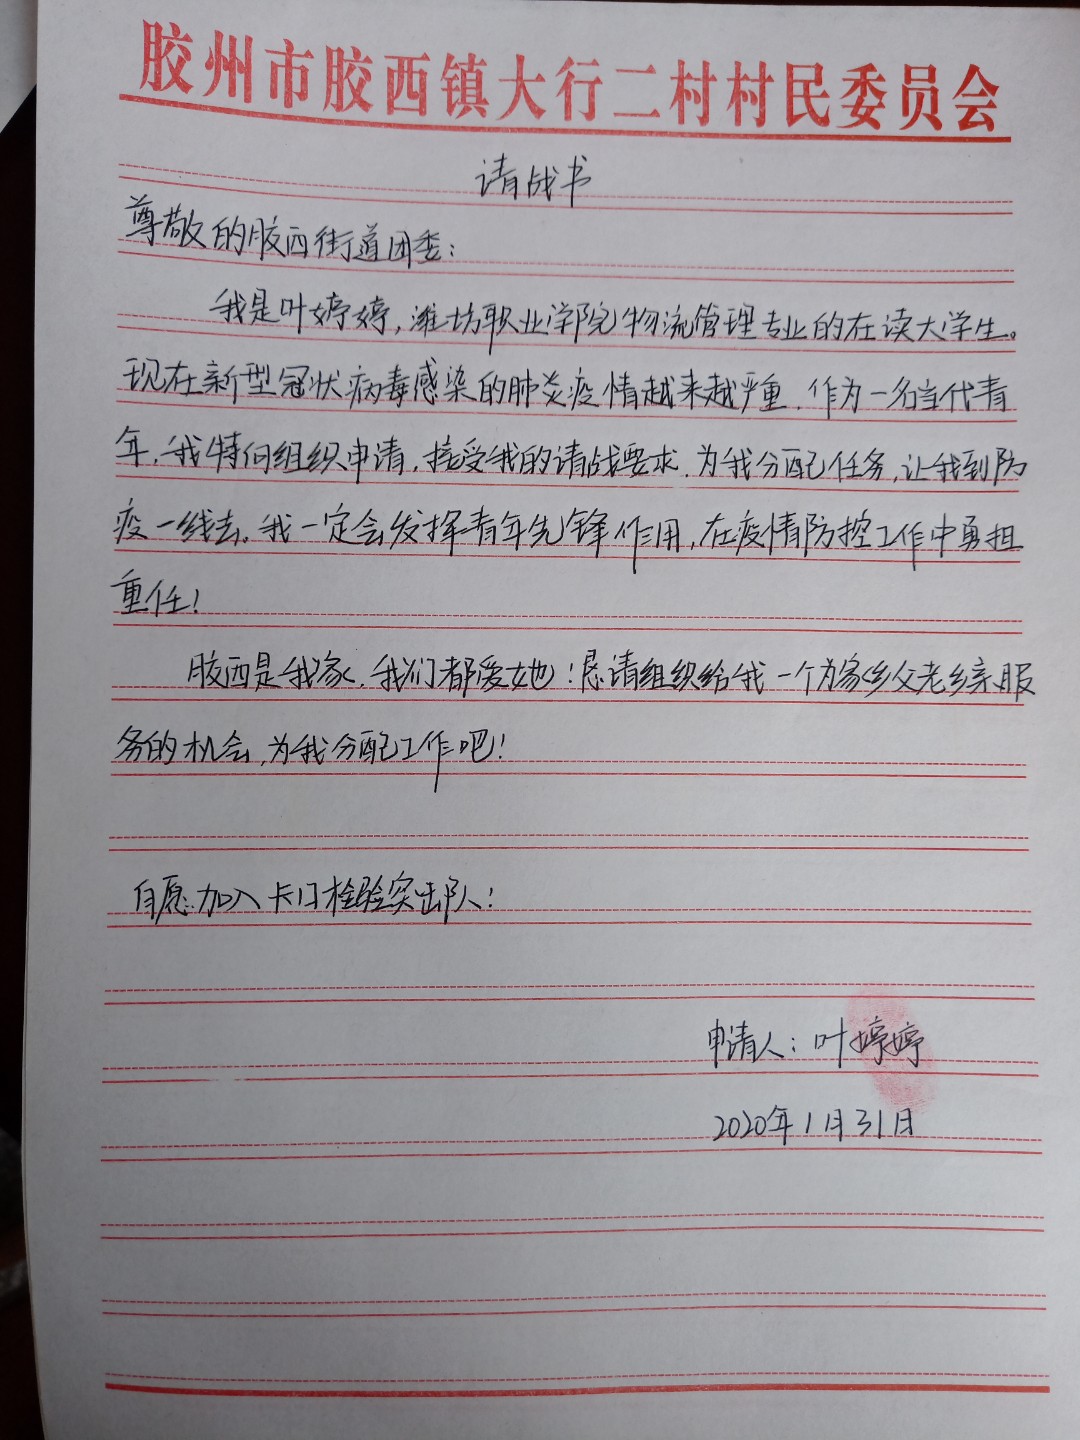 胶州市胶西镇大行二村村民委员会
请战书
尊敬的胶西街道团委：
我是叶婷婷，潍坊职业学院物流管理专业的在读大学生。
现在新型冠状病毒感染的肺炎疫情越来越严重，作为一名当代青
年，我特向组织申请，接受我的请战要求，为我分配任务，让我到防
疫一线去，我一定会发挥青年先锋作用，在疫情防控工作中勇担
重任！
胶西是我家，我们都爱她！恳请组织给我一个为家乡父老乡亲服
务的机会，为我分配工作吧！
自愿加入卡口检验突击队！
申请人：叶婷婷
2020年1月31日